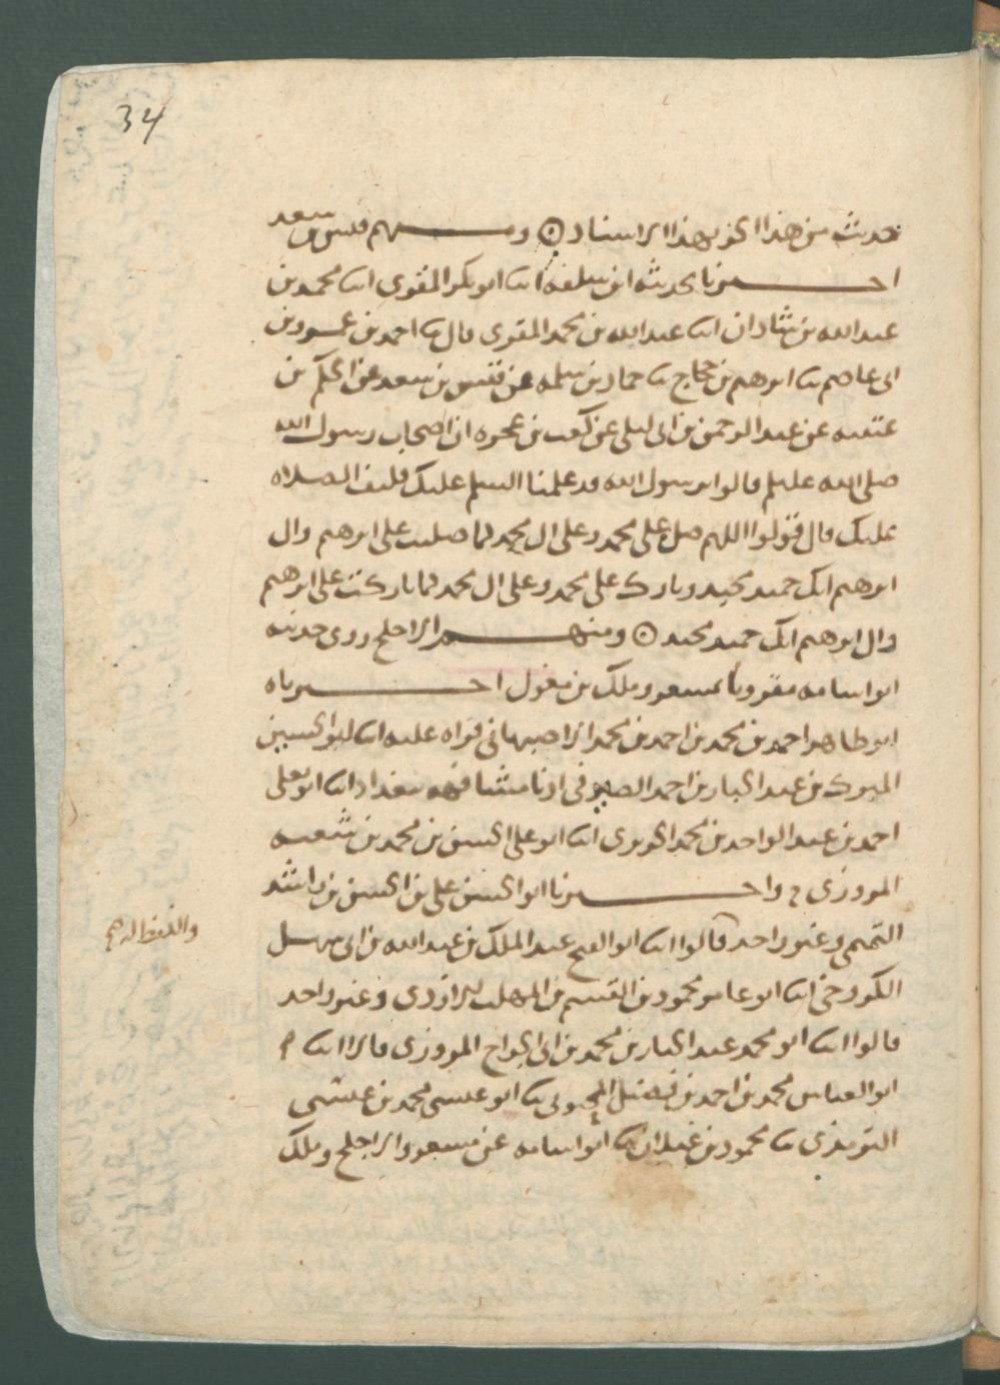 34
حدیث من هذا الجزء بهذا الاسناد ۞ ومنهم قیس بن سعد
اخبرنا بحدیثه ابن سلفه انا ابو بکر المقری انا محمد بن
عبد الله بن شاذان انا عبد الله بن محمد المقری قال نا احمد بن عمرو بن
ابی عاصم نا ابرهیم بن حجاج نا حماد بن سلمه عن قیس بن سعد عن الحکم بن
عتیبه عن عبد الرحمن بن ابی لیلی عن کعب بن عجره ان اصحاب رسول الله
صلی الله علیه وسلم قالوا یرسول الله قد علمنا السلم علیک فکیف الصلاه
علیک قال قولوا اللهم صل علی محمد وعلی ال محمد کما صلیت علی ابرهیم وال
ابرهیم انک حمید مجید وبارک علی محمد وعلی ال محمد کما بارکت علی ابرهیم
وال ابرهیم انک حمید مجید ۞ ومنهم الاجلح روی حدیثه
ابو اسامه مقرونا بمسعر وملک بن مغول اخبرناه
ابو طاهر احمد بن محمد بن احمد بن محمد الاصبهانی قراه علیه انا ابو الحسین
المبرک بن عبد الجبار بن احمد الصیرفی اذنا مشافهه ببغداد انا ابو یعلی
احمد بن عبد الواحد بن محمد الحریری انا ابو علی الحسن بن محمد بن شعبه
المروزی ح واخبرنا ابو الحسن علی بن الحسن بن راشد
التمیمی وغیر واحد قالوا انا ابو الفتح عبد الملک بن عبد الله بن ابی سهل
واللفظ لهم
الکروخی انا ابو عامر محمود بن القسم بن المهلب الازدی وغیر واحد
قالوا انا ابو محمد عبد الجبار بن محمد بن ابی الجراح المروزی قالا انا
ابو العباس محمد بن احمد بن فضیل المحبوبی نا ابو عیسی محمد بن عیسی
الترمذی نا محمود بن غیلان نا ابو اسامه عن مسعر والاجلح وملک